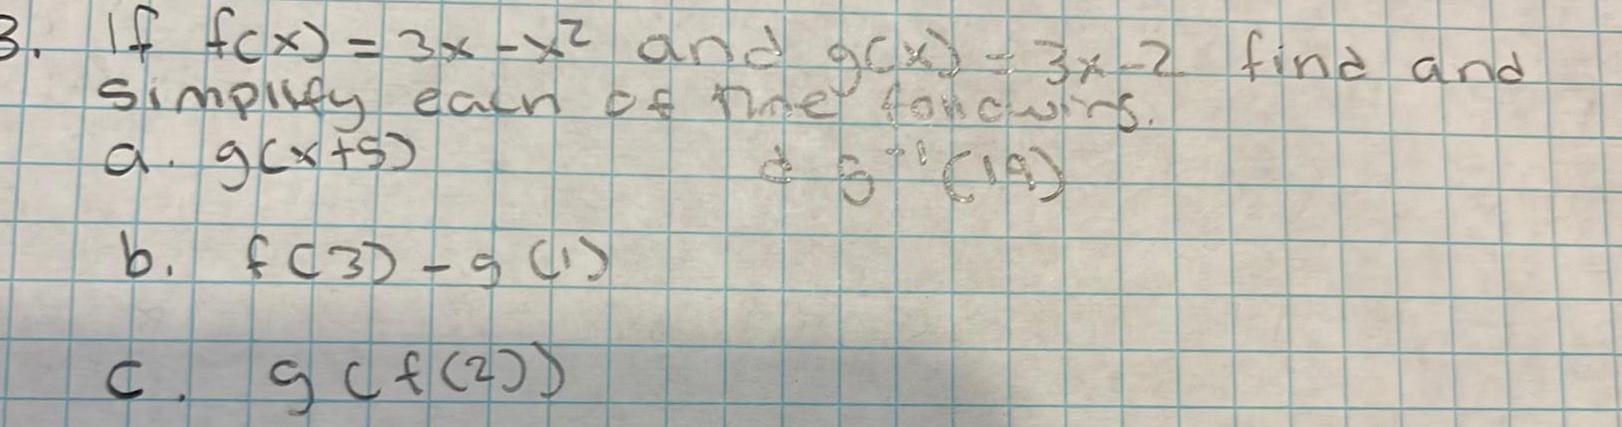 3. If f(x) = 3x - x² and g(x) = 3x - 2 find and
simplify each of the following.
a. g(x+5)
d g⁻¹(19)
b. f(3) - g(1)
c. g(f(2))